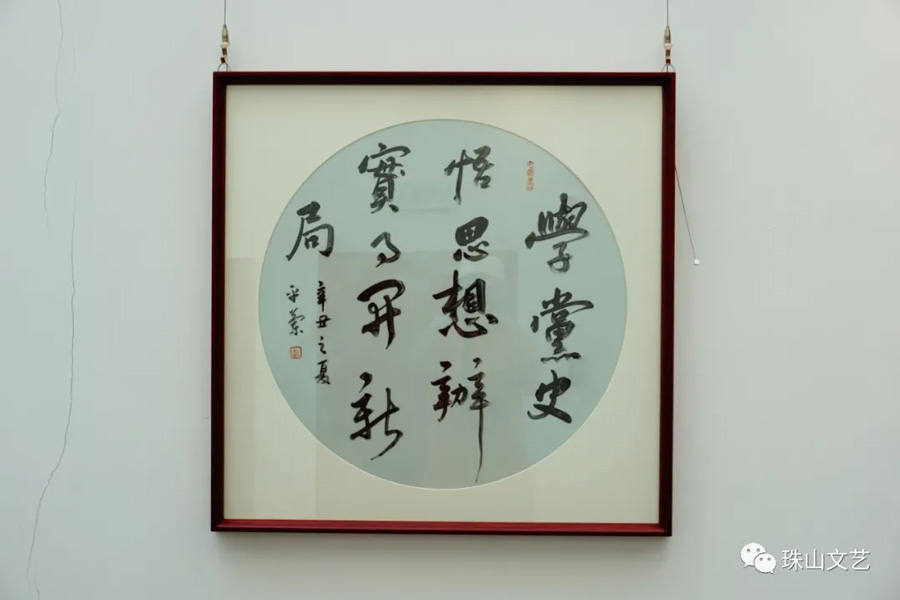 學黨史
悟思想辦
實事開新
局
辛丑之夏
平蘭
珠山文艺